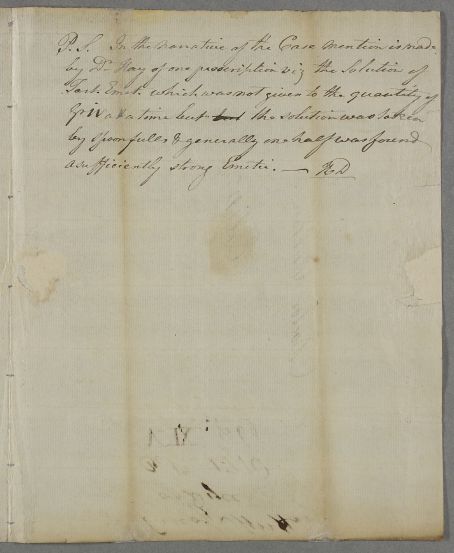 P.S. In the narrative of the Case mention is made
by Dr. Hay of one prescription viz the Solution of
Tart. Emet. which was not given to the quantity of
at a time but the solution was taken
by spoonfulls & generally one half was found
a sufficiently strong Emetic. —